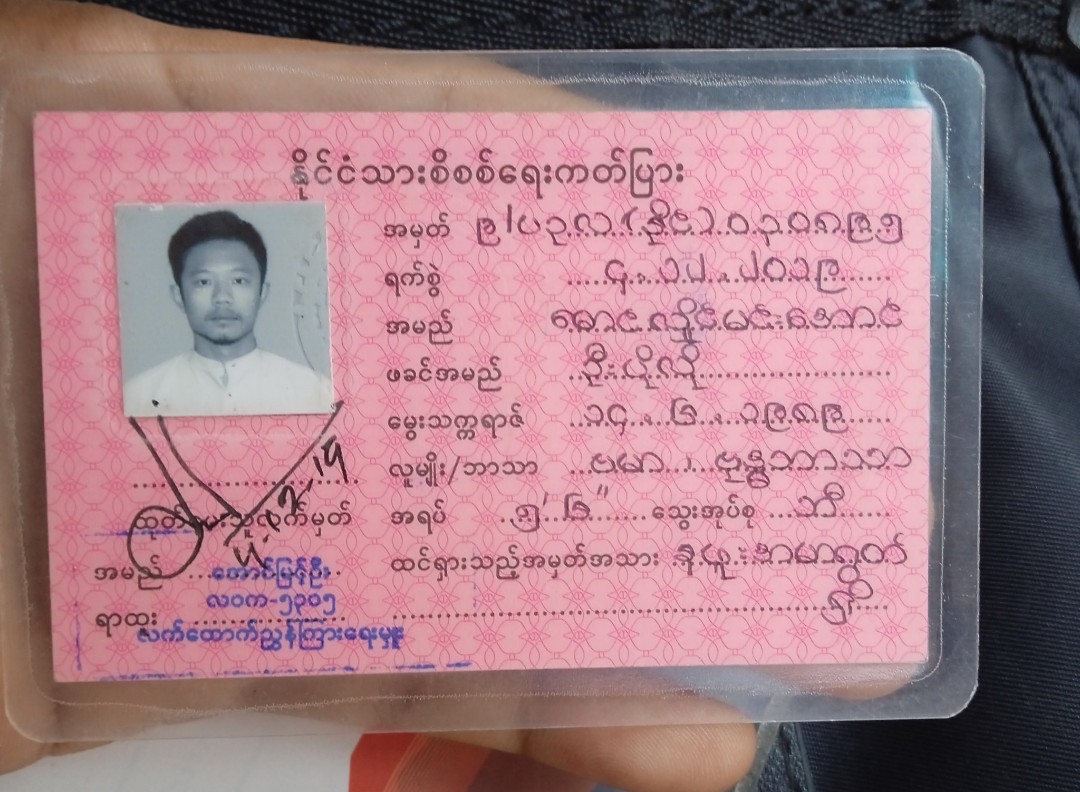 နိုင်ငံသားစိစစ်ရေးကတ်ပြား
အမှတ် ၉/ပဥလ(နိုင်)၀၃၀၈၉၅
ရက်စွဲ ၄.၁၂.၂၀၁၉
အမည် မောင်လှိုင်မင်းအောင်
ဖခင်အမည် ဦးပိုလို
မွေးသက္ကရာဇ် ၁၄.၆.၁၉၈၉
လူမျိုး/ဘာသာ ဗမာ ၊ ဗုဒ္ဓဘာသာ
အရပ် ၅' ၆" သွေးအုပ်စု ဘီ
ထင်ရှားသည့်အမှတ်အသား နဖူးအမာရွတ်ရှိ
လက်မှတ်
4.12.19
အမည် အောင်မြင့်ဦး
လဝက-၅၃၀၅
ရာထူး လက်ထောက်ညွှန်ကြားရေးမှူး